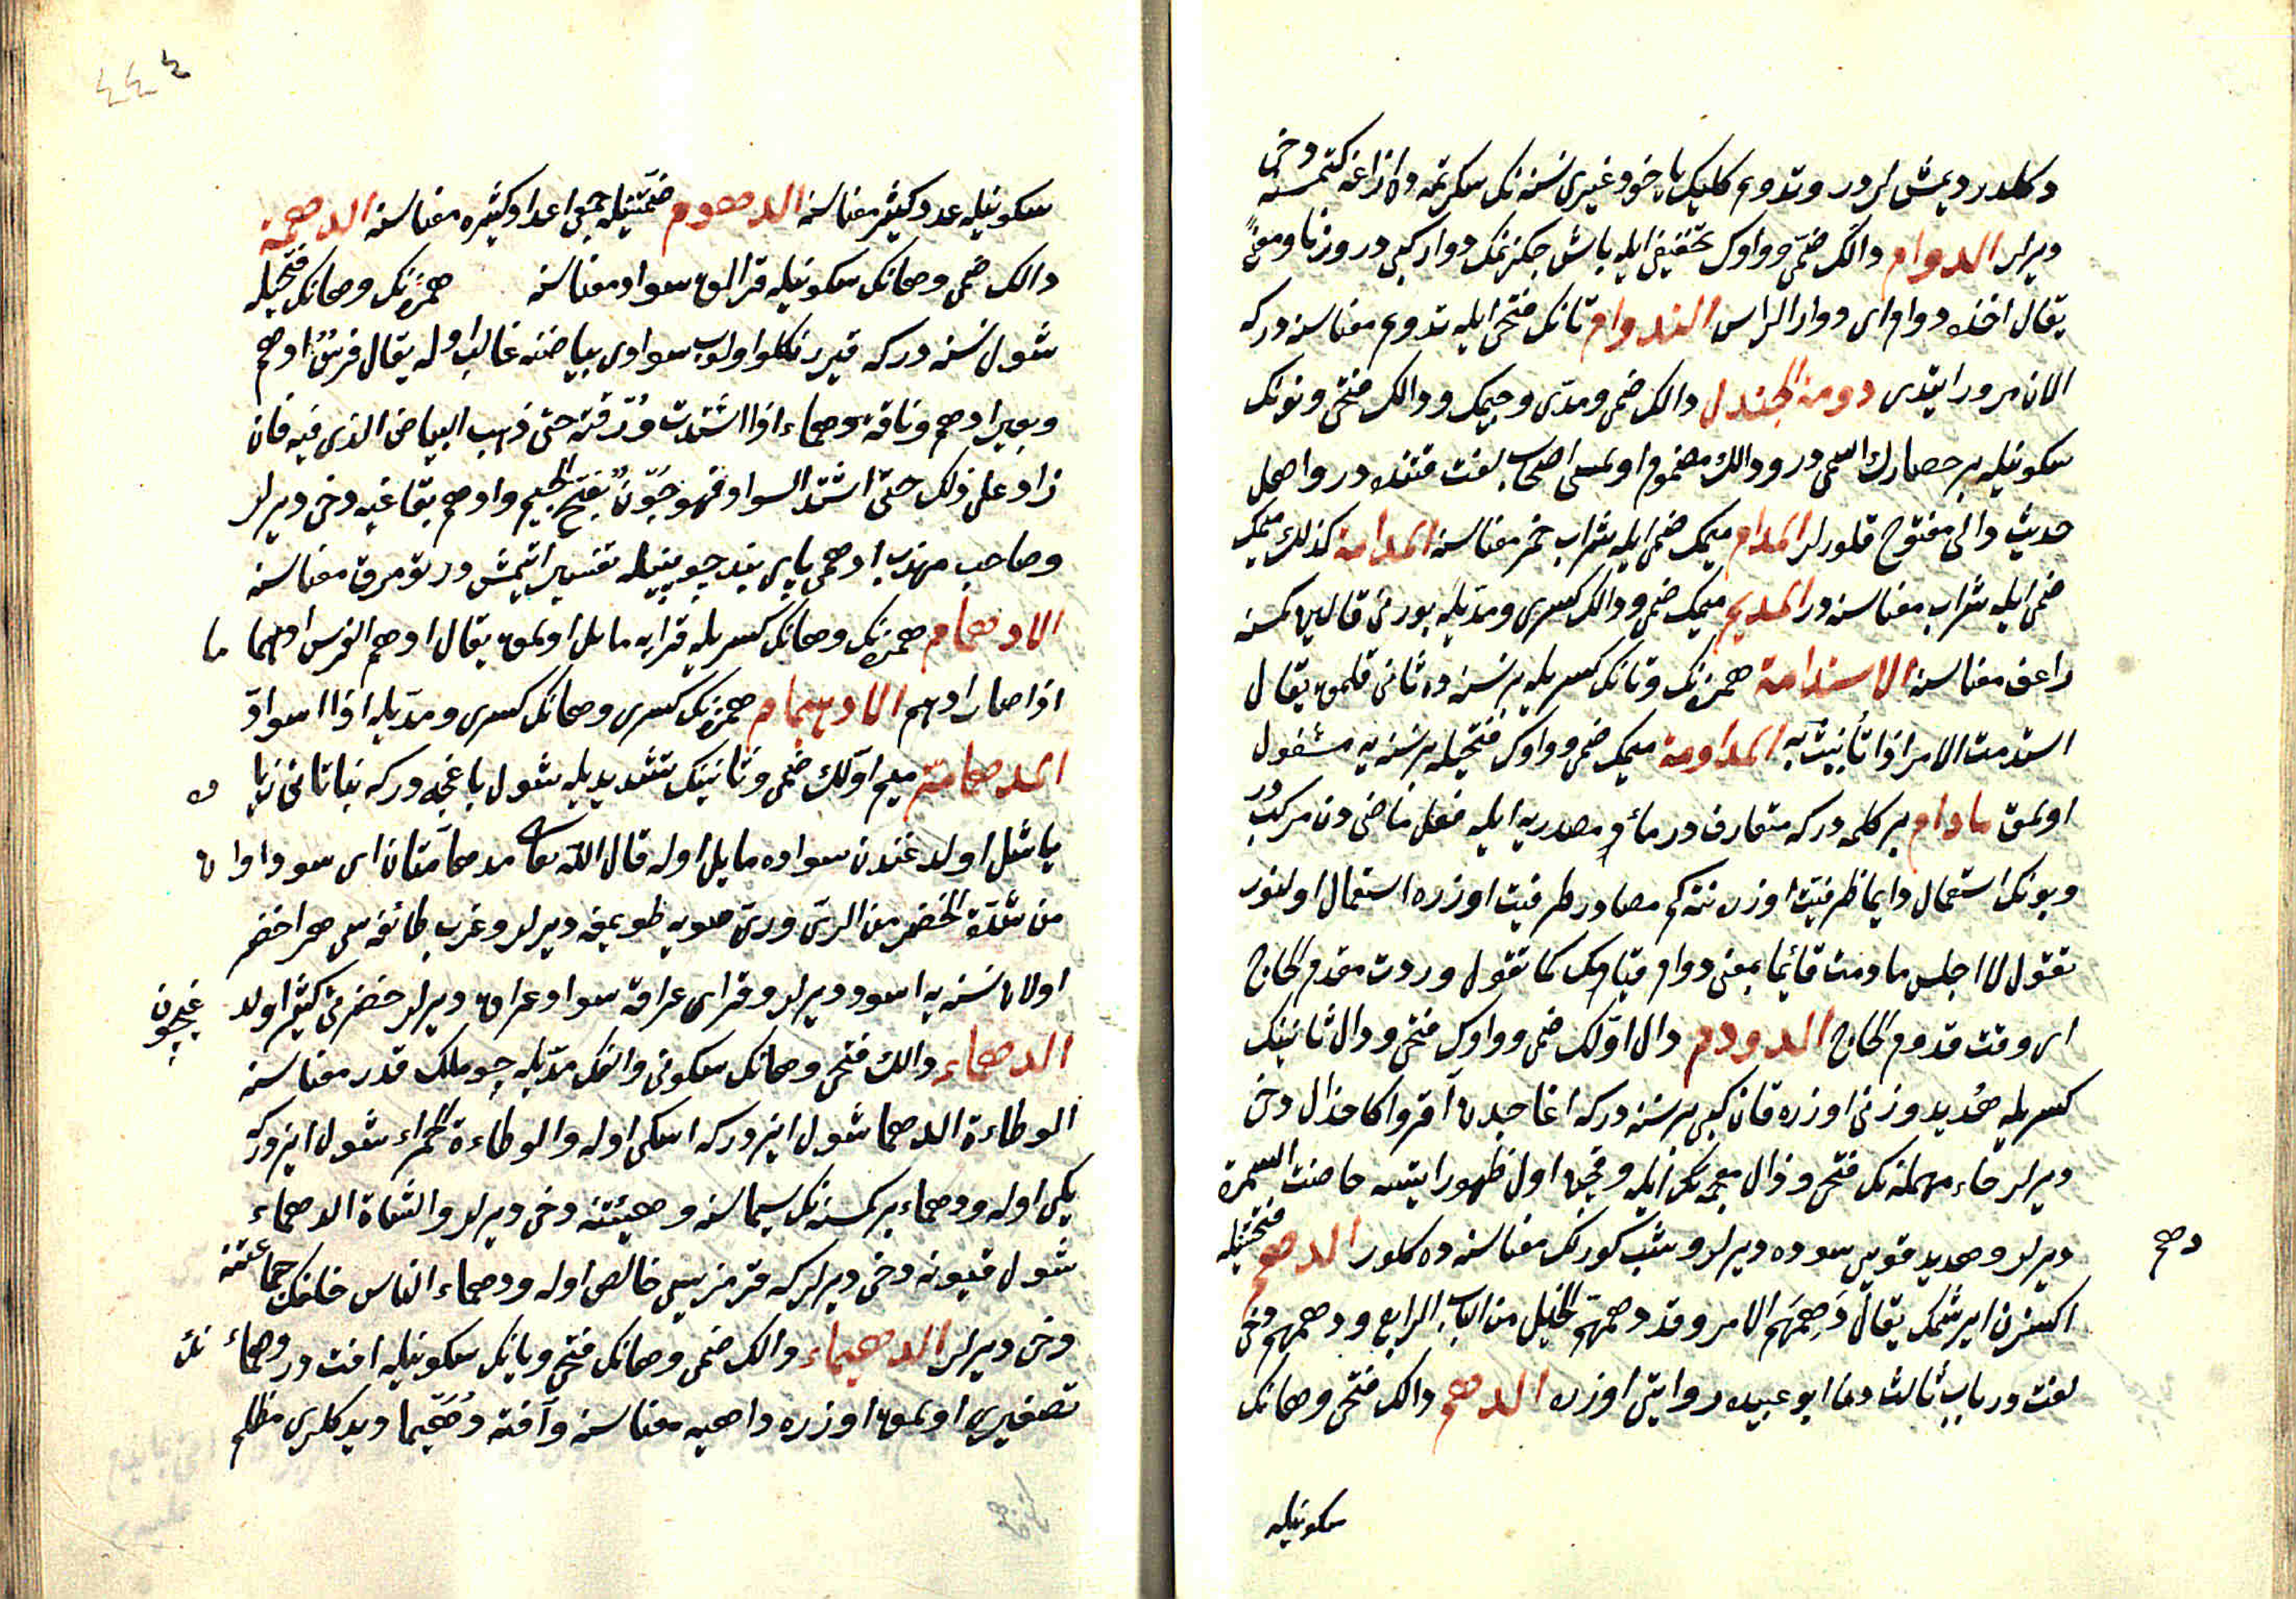 دكلدر ديمش لردر وتدويم كليك يا خود غيرى نسنه نك سكرتمه ده اذراعنه كتمسنه دخى
ديرلر الدوام دالك ضمى وواوك تخفيفى ايله باش جكزنمك دوار كبى در وزنا ومعنىً
يقال اخذه دوام اى دوار الراس التدوام تانك فتحى ايله تدويم معناسنه در كه
الان مرور ايتدى دومة الجندل دالك ضمى ومدّى وجيمك ودالك فتحى ونونك
سكونيله بر حصارك اسمى در ودالك مضموم اولمسى اصحاب لغت قتنده در واهل
حديث دالى مفتوح قلورلر المدام ميمك ضمى ايله شراب خمر معناسنه المدامة كذلك ميمك
ضمى ايله شراب معناسنه در المديم ميمك ضمى ودالك كسرى ومديله بورنى قاناين كمسنه
راعف معناسنه الاستدامة همزه نك وتانك كسريله بر نسنه ده ثانى قلمق يقال
استدمت الامر اذا تأنيت به المداومة ميمك ضمى وواوك فتحيله بر نسنه يه مشغول
اولمق مادام بر كلمه در كه متعارف در ماء مصدريه ايله فعل ماضى دن مركب در
وبونك استعمال دايما ظرفيت اوزرنته كم مصادر ظرفيت اوزره استعمال اولنور
تقول لا اجلس ما دمت قائما بمعنى دوام قيامك كما تقول وردت مقدم الحاج
اى وقت قدوم الحاج الدودم دال اوّلك ضمى وواوك فتحى ودال ثانينك
كسريله هدبد وزنى اوزره قان كبى بر نسنه در كه اغاجدن آقر واكا حذال دخى
ديرلر حاء مهمله نك فتحى وذال معجمه نك ايله وقچن اول ظهور ايتسه حاضت السمرة
ديرلر وهدبد قويى سوده ديرلر وشب كورلك معناسنه ده كلور الدهم فتحتيله
دهم
اكسزن ايرشمك يقال دَهِمَهم الامر وقد دهمتهم الخيل من الباب الرابع ودهمهم دخى
لغت در باب ثالث دن ابو عبيده روايتى اوزره الدهم دالك فتحى وهانك
سكونيله
٤٤٤
سكونيله عدد كثير معناسنه الدهوم ضمتيله جمعى اعداد كثيره معناسنه الدهمة
دالك ضمى وهانك سكونيله قرالق سواد معناسنه همزه نك وهانك فتحيله
شول نسنه در كه قير رنكلو اولوب سوادى بياضنه غالب اوله يقال فرسٌ ادهم
وبعير ادهم وناقة دهماء اذا اشتدت وُرْقته حتى ذهب البياض الذى فيه فان
زاد على ذلك حتى اشتد السواد فهو جَوْنٌ بفتح الجيم وادهم بقاغيه دخى ديرلر
وصاحب مهذب ادهمى پاى بند چوبينيله تفسير اتيمش در تومرق معناسنه
الادهمام همزه نك وهانك كسريله قرايه مايل اولمق يقال ادهم الفرس ادهما ما
اذا صار ادهم الادهيمام همزه نك كسرى وهانك كسرى ومديله اذا اسوادّ
المدهامّة ميم اوّلك ضمى وثانينك تشديديله شول باغچه در كه نباتاتى زيا ده
ياشل اولدغندن سواده مايل اوله قال الله تعالى مدهآمّتان اى سوداوا ن
من شدّة الخضرة من الرىّ ورىّ صويه طويمغه ديرلر وعرب طائفه سى هر اخضر
اولان نسنه يه اسود ديرلر وقراى عراقه سواد عراق ديرلر خضرتى كثير اولد غيچون
الدهماء دالك فتحى وهانك سكونى والفك مدّيله چوملك قدر معناسنه
الوطاءة الدهما شول ايزدر كه اسكى اوله والوطاءة الحمراء شول ايزدر كه
يكى اوله ودهماء بر كمسنه نك سيماسنه وهيئتنه دخى ديرلر والشاة الدهماء
شول قيونه دخى ديرلر كه قرمزيسى خالص اوله ودهماء الناس خلقك جماعتنه
دخى ديرلر الدهيماء دالك ضمى وهانك فتحى ويانك سكونيله افت در دهماء نك
تصغيرى اولمق اوزره داهيه معناسنه وآفته دُهَيما ديدكلرى مظلم